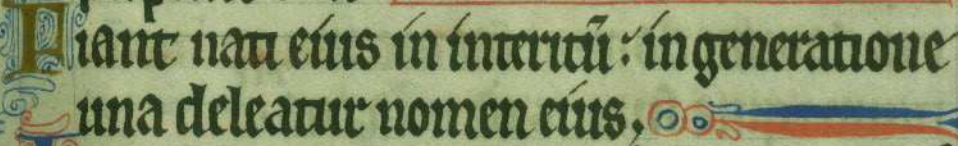 Fiant nati eius in interitū : in generatione
una deleatur nomen eius,